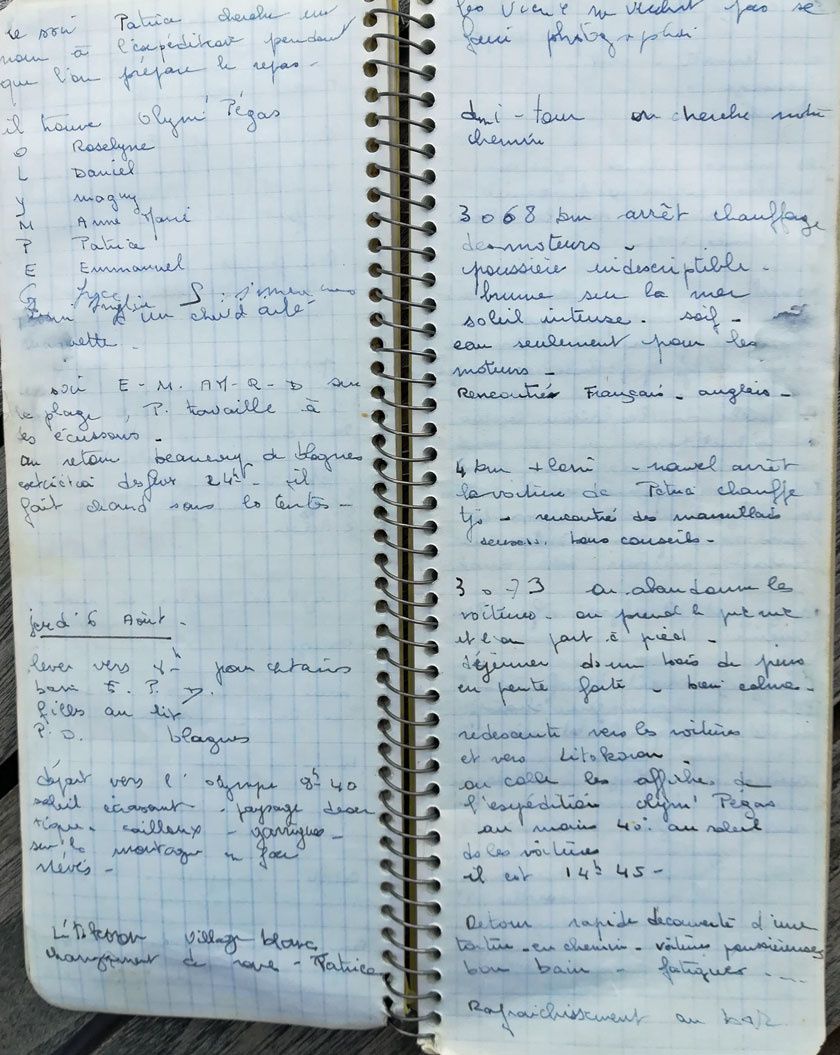 le soir Patrice cherche un
nom à l'expédition pendant
que l'on prépare le repas -
il trouve Olym' Pégas
O Roselyne
L Daniel
Y Maguy
M Anne Marie
P Patrice
E Emmanuel
G
un chef d'
soir E - M. AM - R - D sur
la plage, P. travaille à
les écussons -
au retour beaucoup de blagues
extinction des feux 24h - il
fait chaud sous les tentes -
jeudi 6 Août -
lever vers 8h pour certains
bain E. P. D.
filles au lit
P. D. blagues
départ vers l'Olympe 8h 40
soleil écrasant - paysage déser
tique - cailloux - garrigues -
sur la montagne en face
névés -
Litokoron village blanc
changement de roue - Patrice
les vieux ne veulent pas se
faire photographier
demi-tour on cherche notre
chemin
3068 km arrêt chauffage
des moteurs -
poussière indescriptible -
brume sur la mer
soleil intense - soif -
eau seulement pour les
moteurs -
Rencontrés Français - anglais -
4 km + loin - nouvel arrêt
la voiture de Patrice chauffe
tjs - rencontré des marseillais
bons conseils -
3073 on abandonne les
voitures - on prend le pique nique
et l'on part à pied -
déjeuner dans un bois de pins
en pente forte - bien calme -
redescente vers les voitures
et vers Litokoron -
on colle les affiches de
l'expédition Olym' Pégas
au moins 40° au soleil
ds les voitures
il est 14h 45 -
Retour rapide découverte d'une
tortue - en chemin - voitures poussiéreuses
bon bain - fatigués ....
Rafraichissement au bar